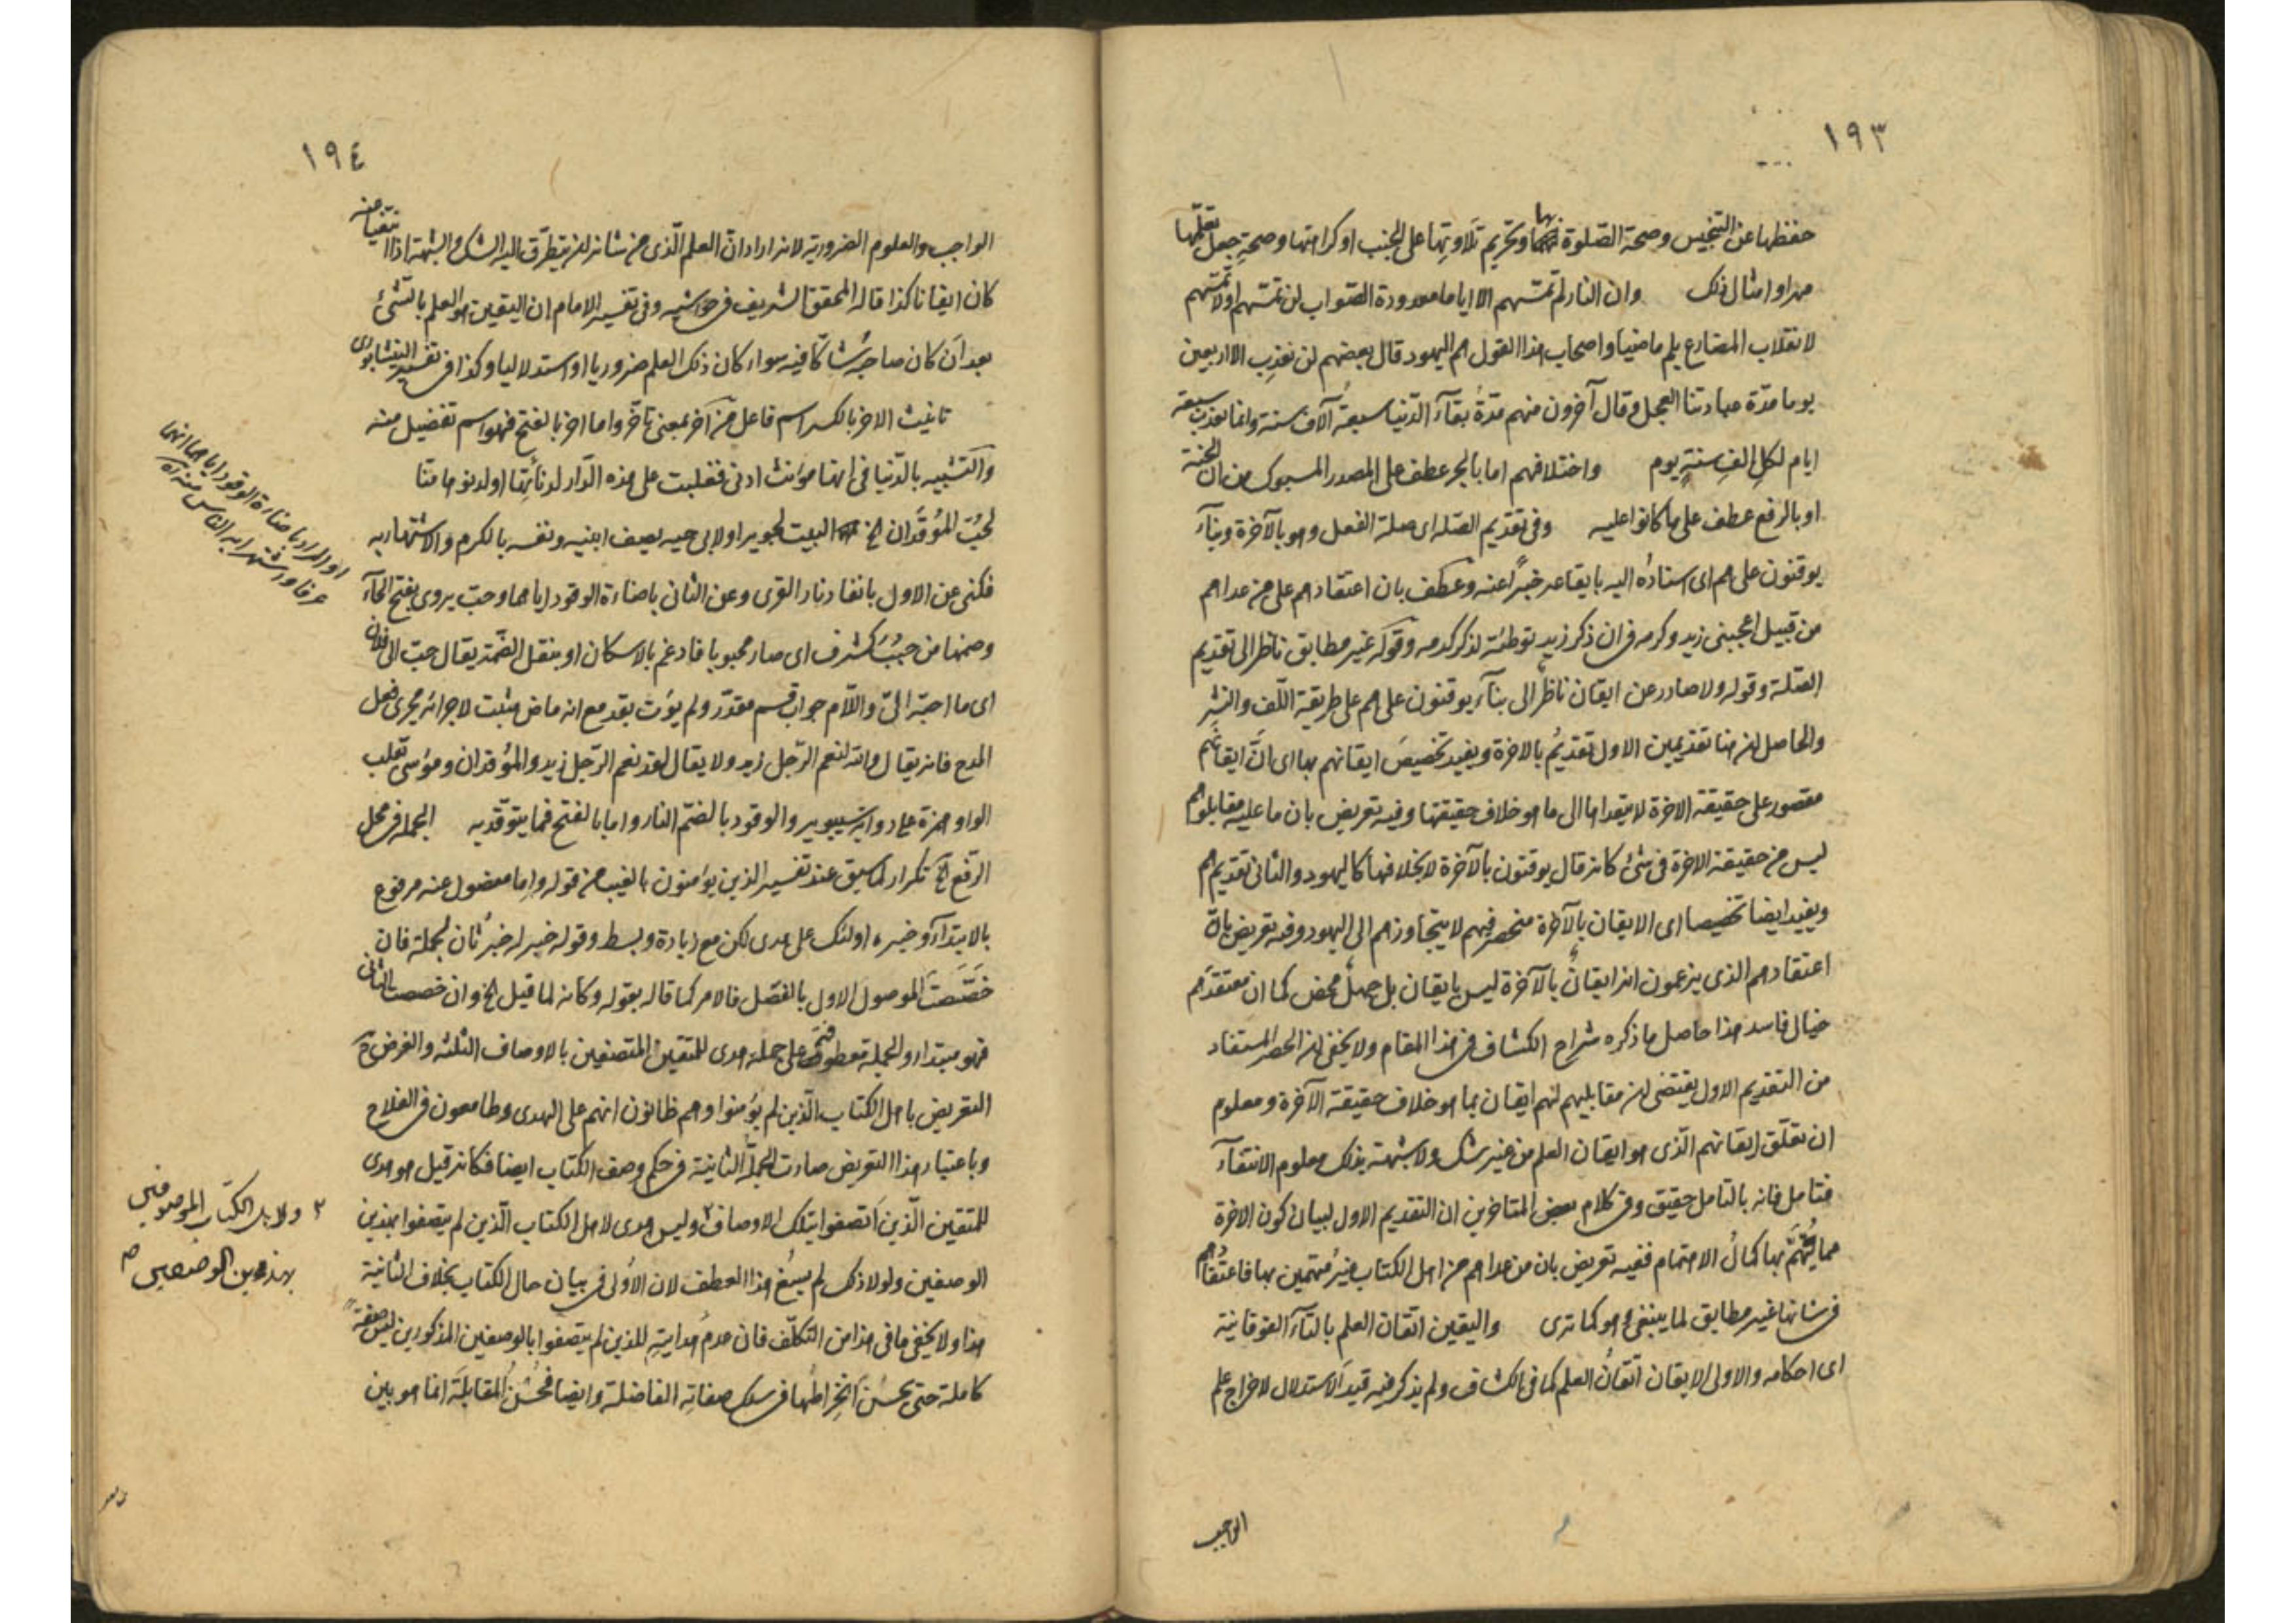 ١٩٣
حفظها عن التنجيس وصحة الصلوة بها وتحريم تلاوتها على الجنب او كراهتها وصحة جعل تعلمها
مهرا وامثال ذلك وان النار لم تمسهم الا اياما معدودة الصواب لن تمسهم او لا تمسهم
لانقلاب المضارع بلم ماضيا واصحاب هذا القول هم اليهود قال بعضهم لن نعذب الا اربعين
يوما مدة عبادتنا العجل وقال آخرون منهم مدة بقآء الدنيا سبعة آلاف سنة وانما نعذب سبعة
ايام لكل الف سنة يوم واختلافهم اما بالجر عطف على المصدر المسبوك من ان الجنة
او بالرفع عطف على ما كانوا عليه وفى تقديم الصله اى صلة الفعل وهو بالآخرة وبنآء
يوقنون على هم اى اسناده اليه بايقاعه خبرًا عنه وعطف بان اعتقادهم على من عداهم
من قبيل اعجبنى زيد وكرمه فى ان ذكر زيد توطئة لذكر كرمه وقوله غير مطابق ناظر الى تقديم
الصلة وقوله ولا صادر عن ايقان ناظر الى بنآء يوقنون على هم على طريقة اللف والنشر
والحاصل ان هنا تقديمين الاول تقديم بالاخرة ويفيد تخصيص ايقانهم بها اى ان ايقانهم
مقصور على حقيقة الاخرة لا يتعداها الى ما هو خلاف حقيقتها وفيه تعريض بان ما عليه مقابلوهم
ليس من حقيقة الاخرة فى شئ كانه قال يوقنون بالآخرة لا بخلافها كاليهود والثانى تقديم هم
ويفيد ايضا تخصيصا اى الايقان بالآخرة منحصر فيهم لا يتجاوزهم الى اليهود وفيه تعريض بان
اعتقادهم الذى يزعمون انه ايقان بالآخرة ليس بايقان بل جهل محض كما ان معتقدهم
خيال فاسد هذا حاصل ما ذكره شراح الكشاف فى هذا المقام ولا يخفى ان الحصر المستفاد
من التقديم الاول يقتضى ان مقابليهم لهم ايقان بما هو خلاف حقيقة الآخرة ومعلوم
ان تعلق ايقانهم الذى هو ايقان العلم من غير شك ولا شبهة بذلك معلوم الانتفآء
فتامل فانه بالتامل حقيق وفى كلام بعض المتاخرين ان التقديم الاول لبيان كون الاخرة
مما يُهْتَمّ بها كمال الاهتمام ففيه تعريض بان من عداهم من اهل الكتاب غير مهتمين بها فاعتقادهم
فى شانها غير مطابق لما ينبغى وهو كما ترى واليقين اتقان العلم بالتآء الفوقانية
اى احكامه والاولى الايقان اتقان العلم كما فى الكشاف ولم يذكر فيه قيد الاستدلال لاخراج علم
الواجب
١٩٤
الواجب والعلوم الضرورية لانه اراد ان العلم الذى من شانه ان يتطرق اليه الشك والشبهة اذا انتفيا عنه
كان ايقانا كذا قاله المحقق الشريف فى حواشيه وفى تفسير الامام ان اليقين هو العلم بالشئ
بعد ان كان صاحبه شاكا فيه سواء كان ذلك العلم ضروريا او استدلاليا وكذا فى تفسير النيشابورى
تانيث الاخر بالكسر اسم فاعل من آخر بمعنى تاخر واما اخر بالفتح فهو اسم تفضيل منه
والتشبيه بالدنيا فى انها مؤنث ادنى فغلبت على هذه الدار لدنائتها او لدنوها منا
لحبّ المؤقدان الخ البيت لجرير او لابى حيه يصف ابنيه ونفسه بالكرم والاشتهار به
فكنى عن الاول بايقاد نار القرى وعن الثانى باضاءة الوقود اياهما وحب يروى بفتح الحآء
وضمها من حبب كشرف اى صار محبوبا فادغم بالاسكان او بنقل الضمة يقال حب الى فلان
اى ما احبه الىّ واللام جواب قسم مقدر ولم يؤت بقد مع انه ماض مثبت لاجرائه مجرى فعل
المدح فانه يقال والله لنعم الرجل زيد ولا يقال لقد نعم الرجل زيد والمؤقدان ومؤسى تقلب
الواو همزة على رواية سيبويه والوقود بالضم النار واما بالفتح فما يتوقد به الجملة فى محل
الرفع الخ تكرار لما سبق عند تفسير الذين يؤمنون بالغيب من قوله واما مفصول عنه مرفوع
بالابتدآء وخبره اولئك على هدى لكن مع زيادة وبسط وقوله خبر له خبر ثان لجملة فان
خصصت الموصول الاول بالفصل فالامر كما قاله بقوله وكانه لما قيل الخ وان خصصت الثانى
فهو مبتدا والجملة معطوفة على جملة هدى للمتقين المتصفين بالاوصاف الثلثه والغرض ح
التعريض باهل الكتاب الذين لم يؤمنوا وهم ظانون انهم على الهدى وطامعون فى الفلاح
وباعتبار هذا التعريض صارت الجملة الثانية فى حكم وصف الكتاب ايضا فكانه قيل هو هدى
للمتقين الذين اتصفوا بتلك الاوصاف ٢ وليس هدى لاهل الكتاب الذين لم يتصفوا بهذين
الوصفين ولولا ذلك لم يسغ هذا العطف لان الاولى فى بيان حال الكتاب بخلاف الثانية
هذا ولا يخفى ما فى هذا من التكلف فان عدم هدايته للذين لم يتصفوا بالوصفين المذكورين ليس صفة
كاملة حتى يحسن انخراطها فى سلك صفاته الفاضلة وايضا فحسن المقابلة انما هو بين
او المراد باضاءة الوقود اياهما انهما
عرفا واشتهرا به الناس
٢ ولاهل الكتاب الموصوفين
بهذين الوصفين ص